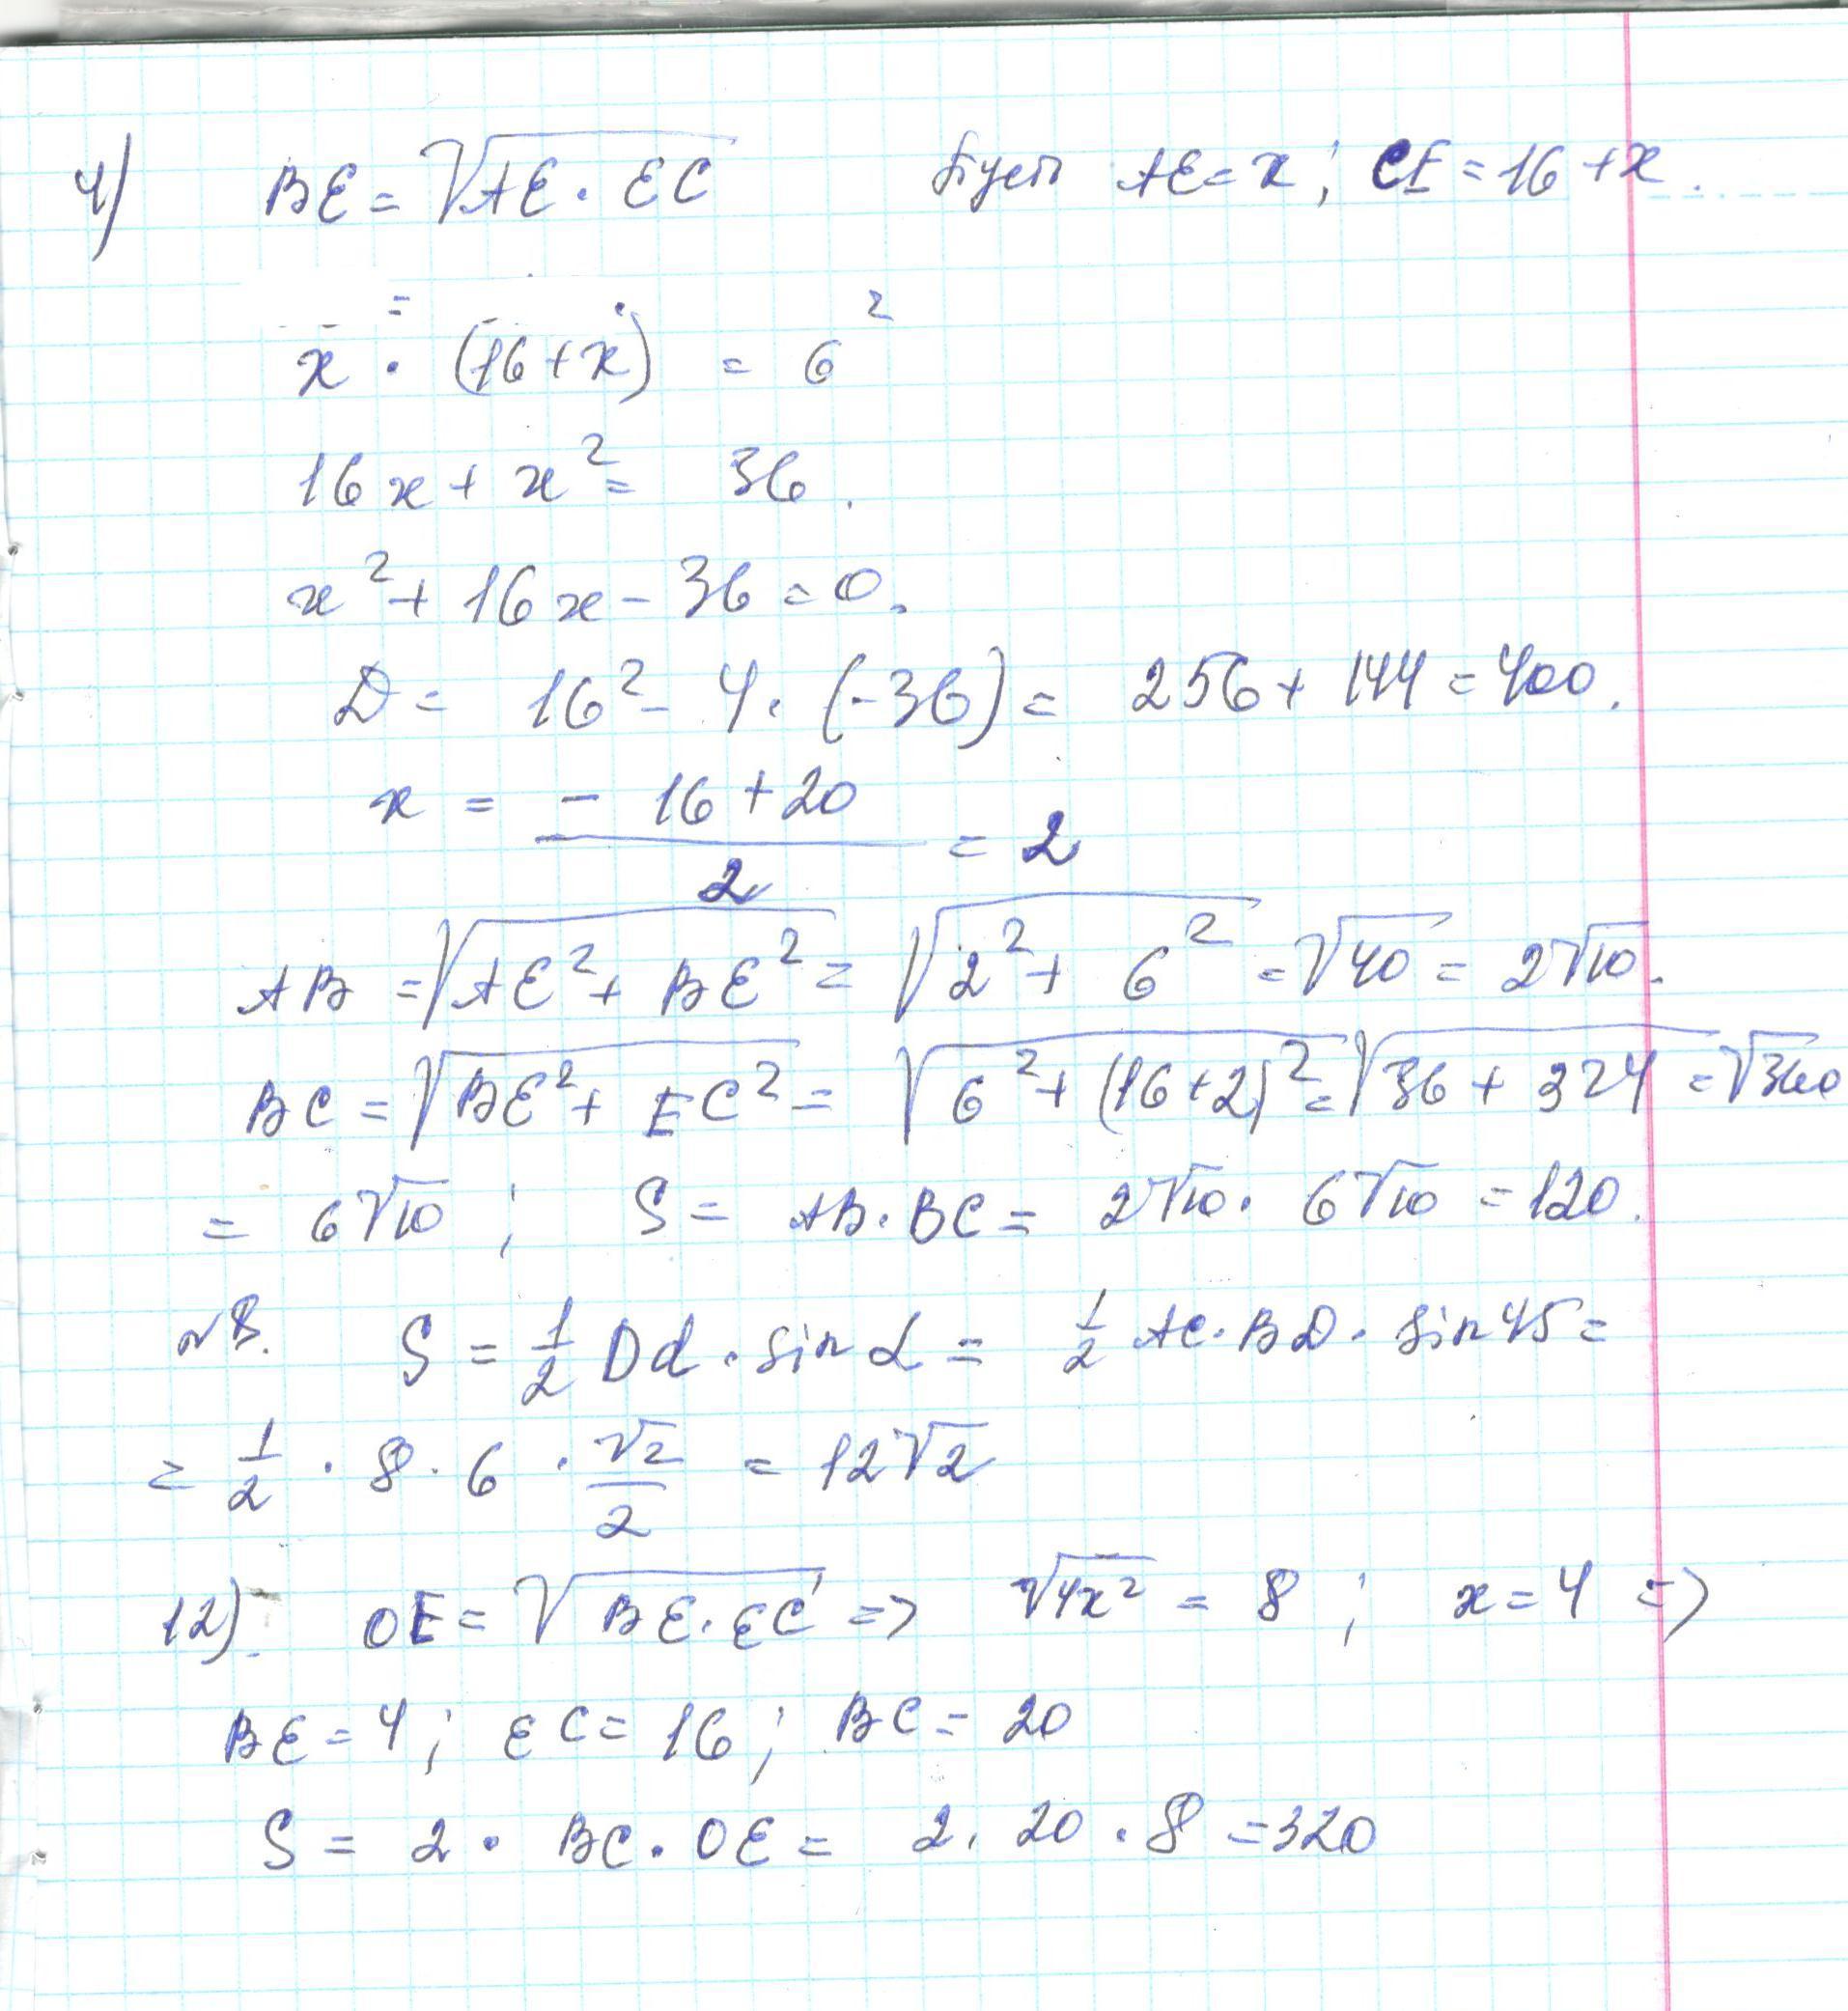 4) BE = √AE · EC Пусть AE = x; CE = 16 + x.
x · (16 + x) = 6²
16x + x² = 36.
x² + 16x - 36 = 0.
D = 16² - 4 · (-36) = 256 + 144 = 400.
x = (- 16 + 20) / 2 = 2
AB = √AE² + BE² = √2² + 6² = √40 = 2√10.
BC = √BE² + EC² = √6² + (16+2)² = √36 + 324 = √360
= 6√10; S = AB · BC = 2√10 · 6√10 = 120.
№8. S = 1/2 Dd · sin α = 1/2 AC · BD · sin 45 =
= 1/2 · 8 · 6 · √2/2 = 12√2
12) OE = √BE · EC => √4x² = 8; x = 4 =>
BE = 4; EC = 16; BC = 20
S = 2 · BC · OE = 2 · 20 · 8 = 320